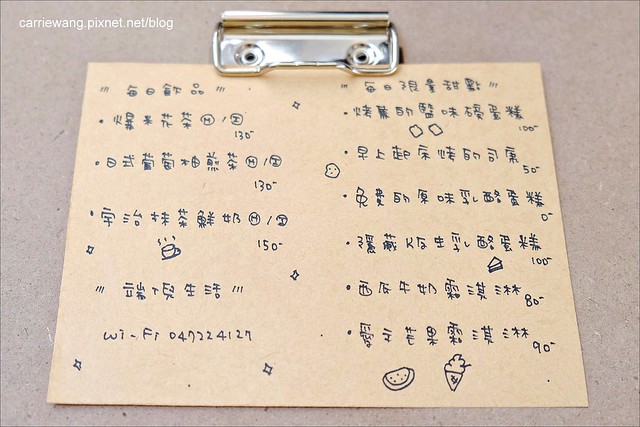 carriewang.pixnet.net/blog
〃 每日飲品 〃
・爆米花茶 Ⓗ/Ⓘ
130-
・日式葡萄柚煎茶 Ⓗ/Ⓘ
130-
・宇治抹茶鮮奶 Ⓗ/Ⓘ
150-
〃 端倪生活 〃
Wi-Fi 047224127
〃 每日限量甜點 〃
・烤蕉的鹽味磅蛋糕
100-
・早上起床烤的司康
50-
・免費的原味乳酪蛋糕
0-
・隱藏版生乳酪蛋糕
100-
・西瓜牛奶霜淇淋
80-
・愛文芒果霜淇淋
90-